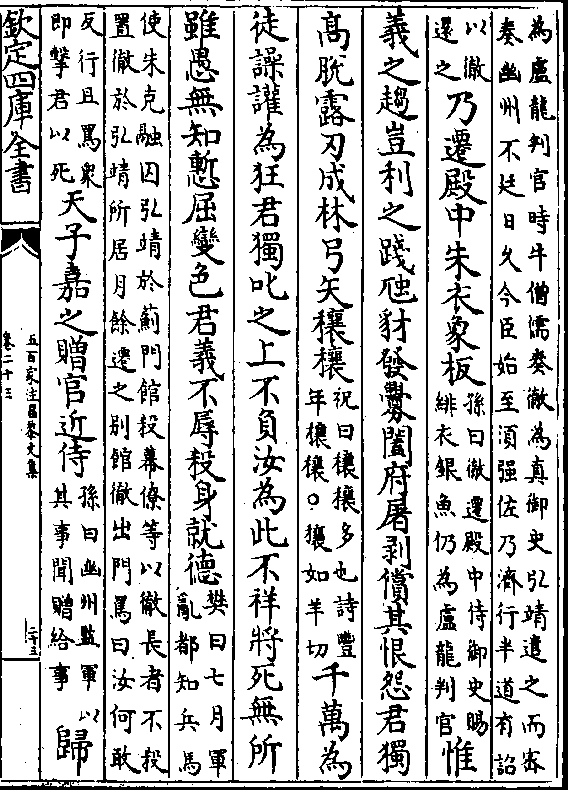 為盧龍判官時牛僧孺奏徹為真御史弘靖遣之而密
奏幽州不廷日久今臣始至須强佐乃濟行半道有詔
以徹
還之
乃遷殿中朱衣象板
孫曰徹遷殿中侍御史賜
緋衣銀魚仍為盧龍判官
惟
義之趨豈利之踐虺豺發釁闔府屠剥償其恨怨君獨
髙脫露刃成林弓矢穰穰
祝曰穰穰多也詩豐
年穰穰○穰如羊切
千萬為
徒譟讙為狂君獨叱之上不負汝為此不祥將死無所
雖愚無知慙屈變色君義不辱殺身就德
樊曰七月軍
亂都知兵馬
使朱克融囚弘靖於薊門館殺幕僚等以徹長者不殺
置徹於弘靖所居月餘遷之别館徹出門罵曰汝何敢
反行且罵衆
即擊君以死
天子嘉之贈官近侍
孫曰幽州監軍以
其事聞贈給事
歸
欽定四庫全書
五百家注昌黎文集
卷二十三
二十三